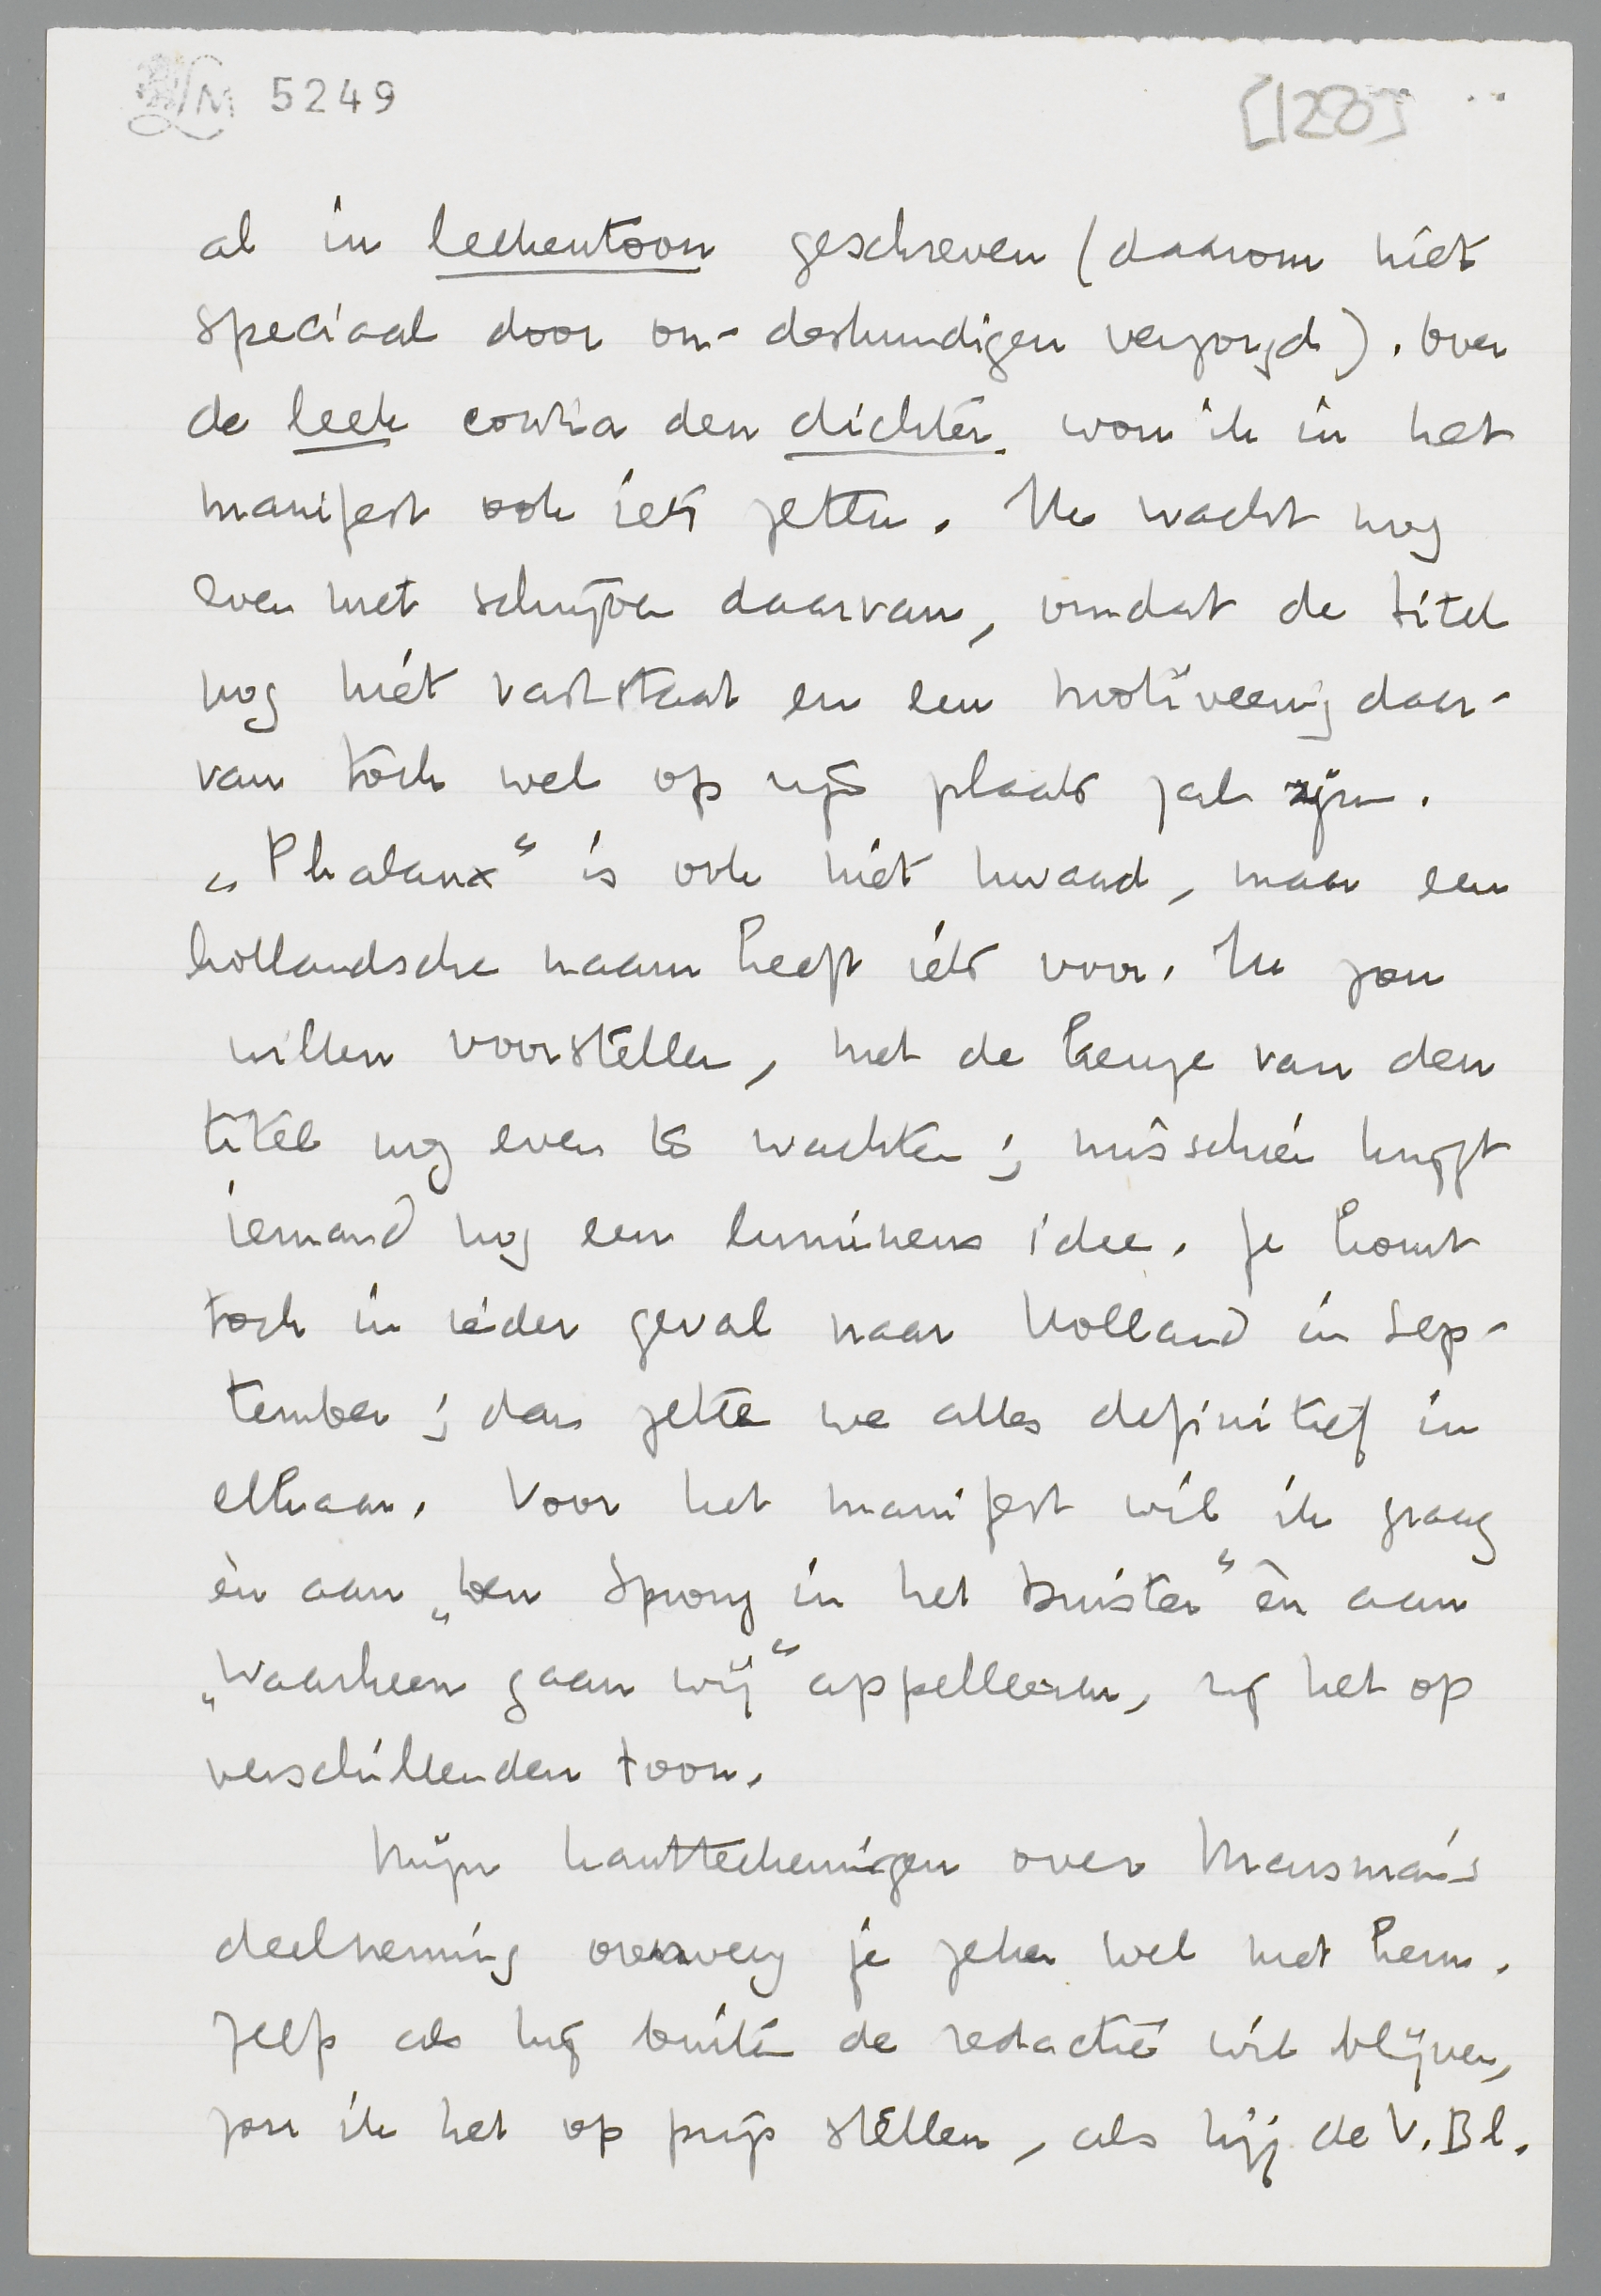 LM 5249 [128]
al in leekentoon geschreven (daarom niet
speciaal door on-deskundigen verzorgd). Over
de leek contra den dichter wou ik in het
manifest ook iets zetten. Ik wacht nog
even met schrijven daarvan, omdat de titel
nog niét vaststaat en een motiveering daar-
van toch wel op zijn plaats zal zijn.
„Phalanx“ is ook niet kwaad, maar een
hollandsche naam heeft iets voor. Ik zou
willen voorstellen, met de keuze van den
titel nog even te wachten; misschien krijgt
iemand nog een lumineus idee. Je komt
toch in ieder geval naar Holland in Sep-
tember; dan zetten we alles definitief in
elkaar. Voor het manifest wil ik graag
èn aan „Een Sprong in het Duister“ èn aan
„Waarheen gaan wij“ appelleeren, zij het op
verschillenden toon.
Mijn kantteekeningen over Marsman's
deelneming overweeg je zeker wel met hem.
Zelfs als hij buiten de redactie wil blijven,
zou ik het op prijs stellen, als hij de V. Bl.